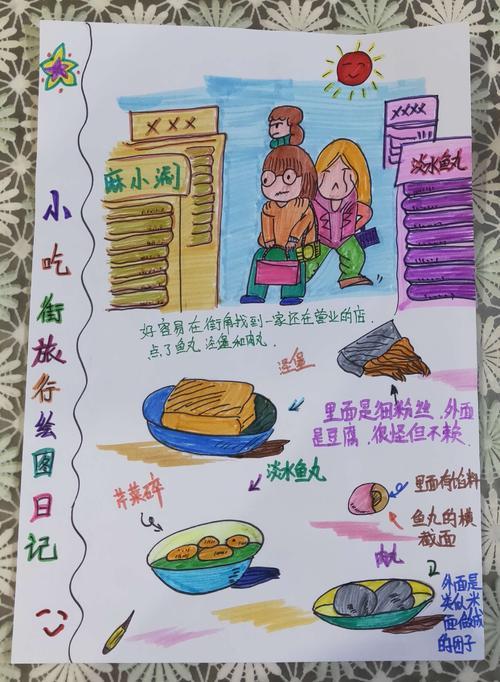 小吃街旅行绘图日记
XXX
麻小涮
XXXX
淡水鱼丸
好容易在街角找到一家还在营业的店.
点了鱼丸 泾堡和肉丸.
泾堡
里面是细粉丝.外面
是豆腐.很怪但不赖.
淡水鱼丸
芹菜碎
里面有馅料
鱼丸的横
截面
肉丸
外面是
类似米
面做成
的团子